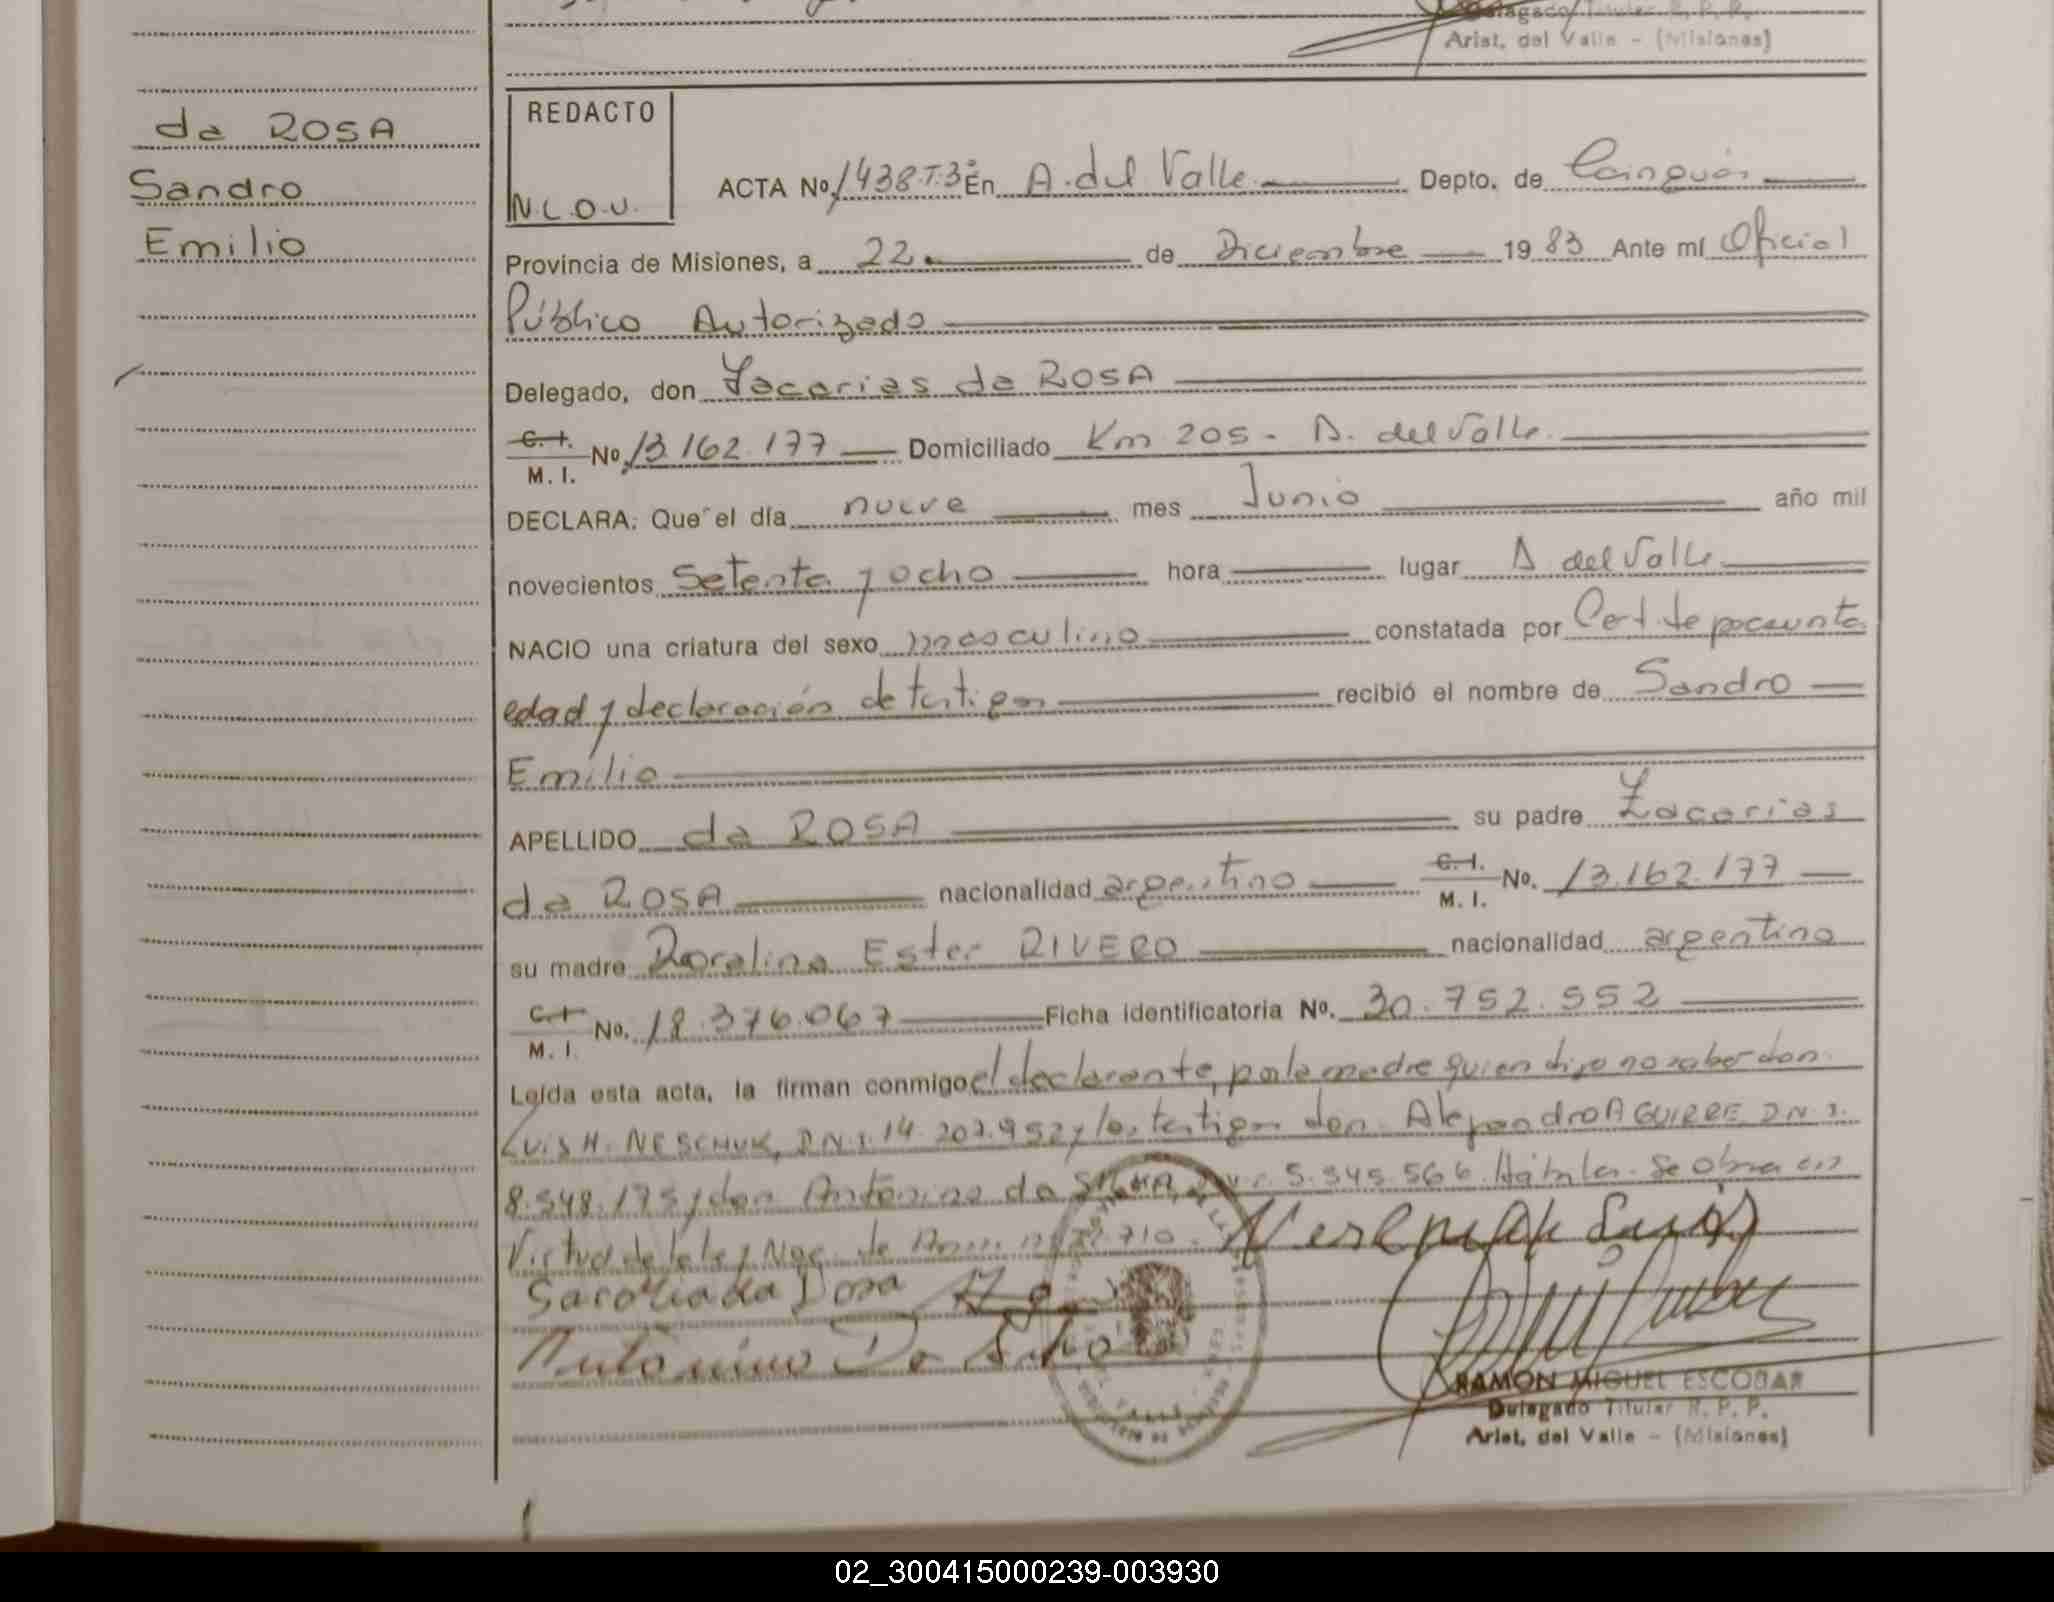 Delegado Titular R. P. P.
Arist. del Valle - (Misiones)
da ROSA
Sandro
Emilio
REDACTO
N.L.O.U.
ACTA Nº 1438.T.3º En A. del Valle Depto. de Cainguás
Provincia de Misiones, a 22 de Diciembre 1983 Ante mí Oficial
Público Autorizado
Delegado, don Zacarias da ROSA
C. I.
M. I. Nº 13.162.177 Domiciliado Km 205 - A. del Valle
DECLARA: Que el día nueve mes Junio año mil
novecientos Setenta y ocho hora lugar A. del Valle
NACIO una criatura del sexo masculino constatada por Cert. de pocaunta
edad y declaración de testigos recibió el nombre de Sandro
Emilio
APELLIDO da ROSA su padre Zacarias
da ROSA nacionalidad argentino C. I. M. I. No. 13.162.177
su madre Doralina Ester RIVERO nacionalidad argentina
C. I. M. I. No. 18.376.067 Ficha identificatoria No. 30.752.552
Leída esta acta, la firman conmigo el declarante, por la madre quien dijo no saber don
Luis H. NESCHUK, D.N.I. 14.207.952 y los testigos don Alejandro AGUIRRE, D.N.I.
8.548.175 y don Antonino da SILVA, 5.345.566. Hábiles. Se obra en
Virtud de la ley Nac. de 22.710.
Antonino Da Silva
RAMON MIGUEL ESCOBAR
Delegado Titular R. P. P.
Arist. del Valle - (Misiones)
02_300415000239-003930